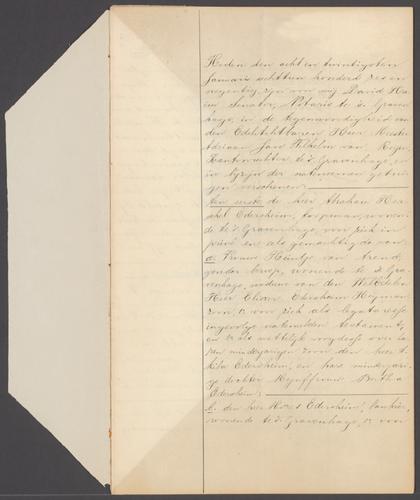 Heden den acht en twintigsten
Januari achttien honderd zes en
negentig, zijn voor mij David Ha
Senator, Notaris te 's Graven
hage, in de tegenwoordigheid van
den Edelachtbaren Heer Meester
Adriaan Jan Wilhelm van
Kantonrechter te 's Gravenhage, en
in bijzijn der natenoemen getui
gen verschenen:
Ten eerste de heer Abraham Her
schel Edersheim, koopman, wonen
de te 's Gravenhage, voor zich in
privé en als gemachtigde van:
a. Vrouwe Heintje van Arend,
zonder beroep, wonende te 's Gra
venhage, weduwe van den WelEdelen
Heer Abraham Heyman
zoon, 1o voor zich als legataresse
ingevolge natemelden testament,
en 2o als wettelijke voogdesse over ha
ren minderjarigen zoon den heer
Edersheim, en hare minderjari
ge dochter Mejuffrouw Bertha
Edersheim;
b. den heer Edersheim, bankier,
wonende te 's Gravenhage, 1o voor